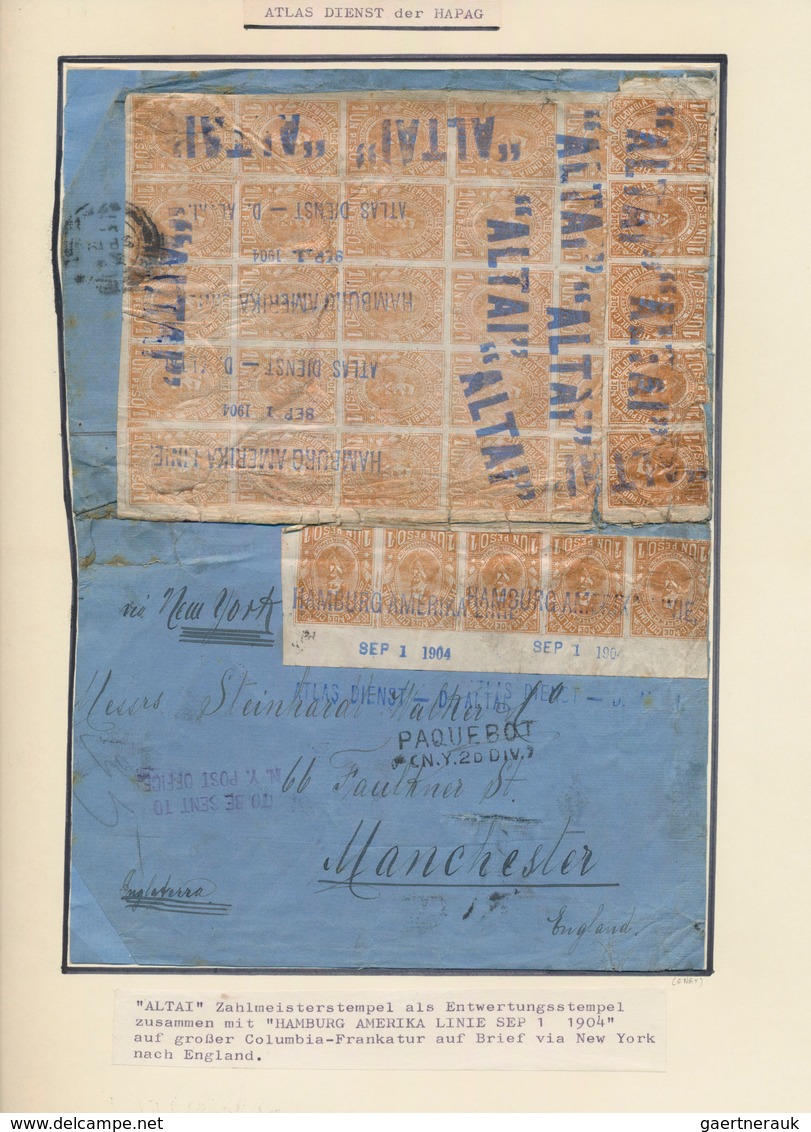 ATLAS DIENST der HAPAG
"ALTAI" "ALTAI" "ALTAI"
"ALTAI" "ALTAI"
"ALTAI" "ALTAI"
"ALTAI" "ALTAI"
"ALTAI"
ATLAS DIENST — D. ALTAI.
SEP 1 1904
HAMBURG AMERIKA LINIE.
ATLAS DIENST — D. ALTAI
SEP 1 1904
HAMBURG AMERIKA LINIE.
1 UN PESO 1 1 UN PESO 1 1 UN PESO 1 1 UN PESO 1 1 UN PESO 1
HAMBURG AMERIKA LINIE HAMBURG AMERIKA LINIE.
SEP 1 1904 SEP 1 1904
via New York
ATLAS DIENST — D. ALTAI
Messrs Steinhardt Walker & Co
PAQUEBOT
(N.Y. 2D DIV.)
66 Faulkner St.
TO BE SENT TO
N. Y. POST OFFICE
Manchester
Engleterra
England.
"ALTAI" Zahlmeisterstempel als Entwertungsstempel
zusammen mit "HAMBURG AMERIKA LINIE SEP 1 1904"
auf großer Columbia-Frankatur auf Brief via New York
nach England.
www.delcampe.net
gaertnerauk